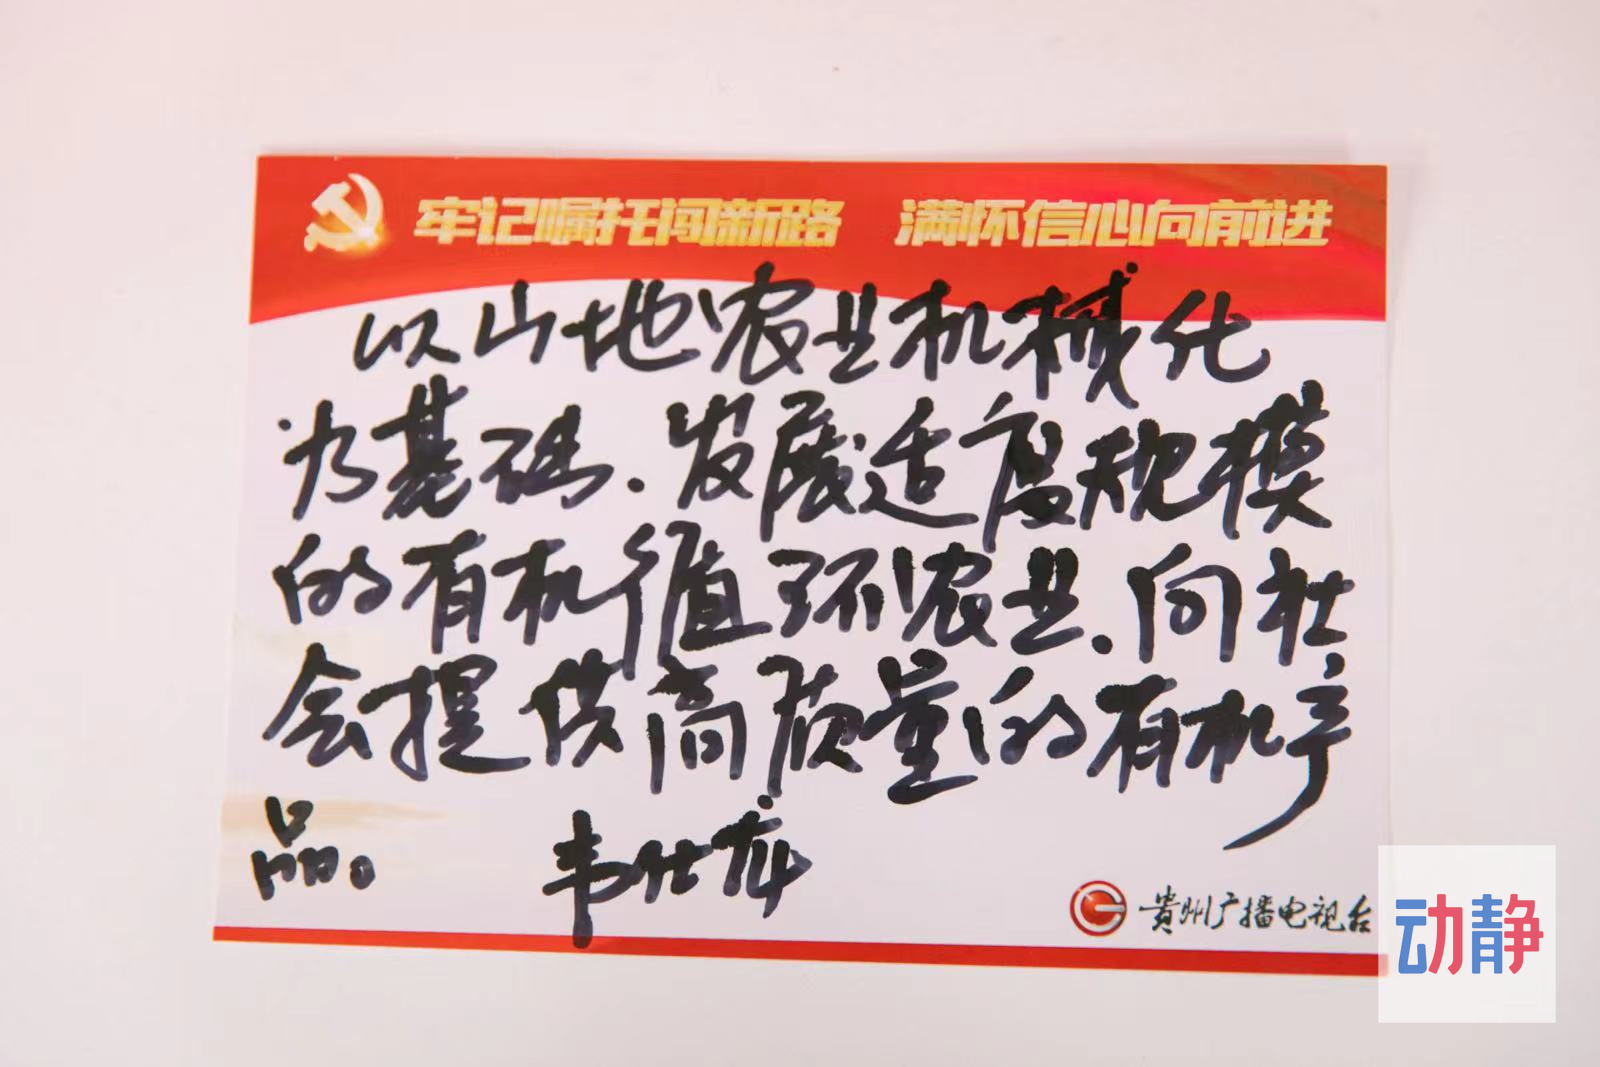 牢记嘱托闯新路 满怀信心向前进
以山地农业机械化
为基础．发展适度规模
的有机循环农业．向社
会提供高质量的有机产
品。 韦仕
贵州广播电视台
动静